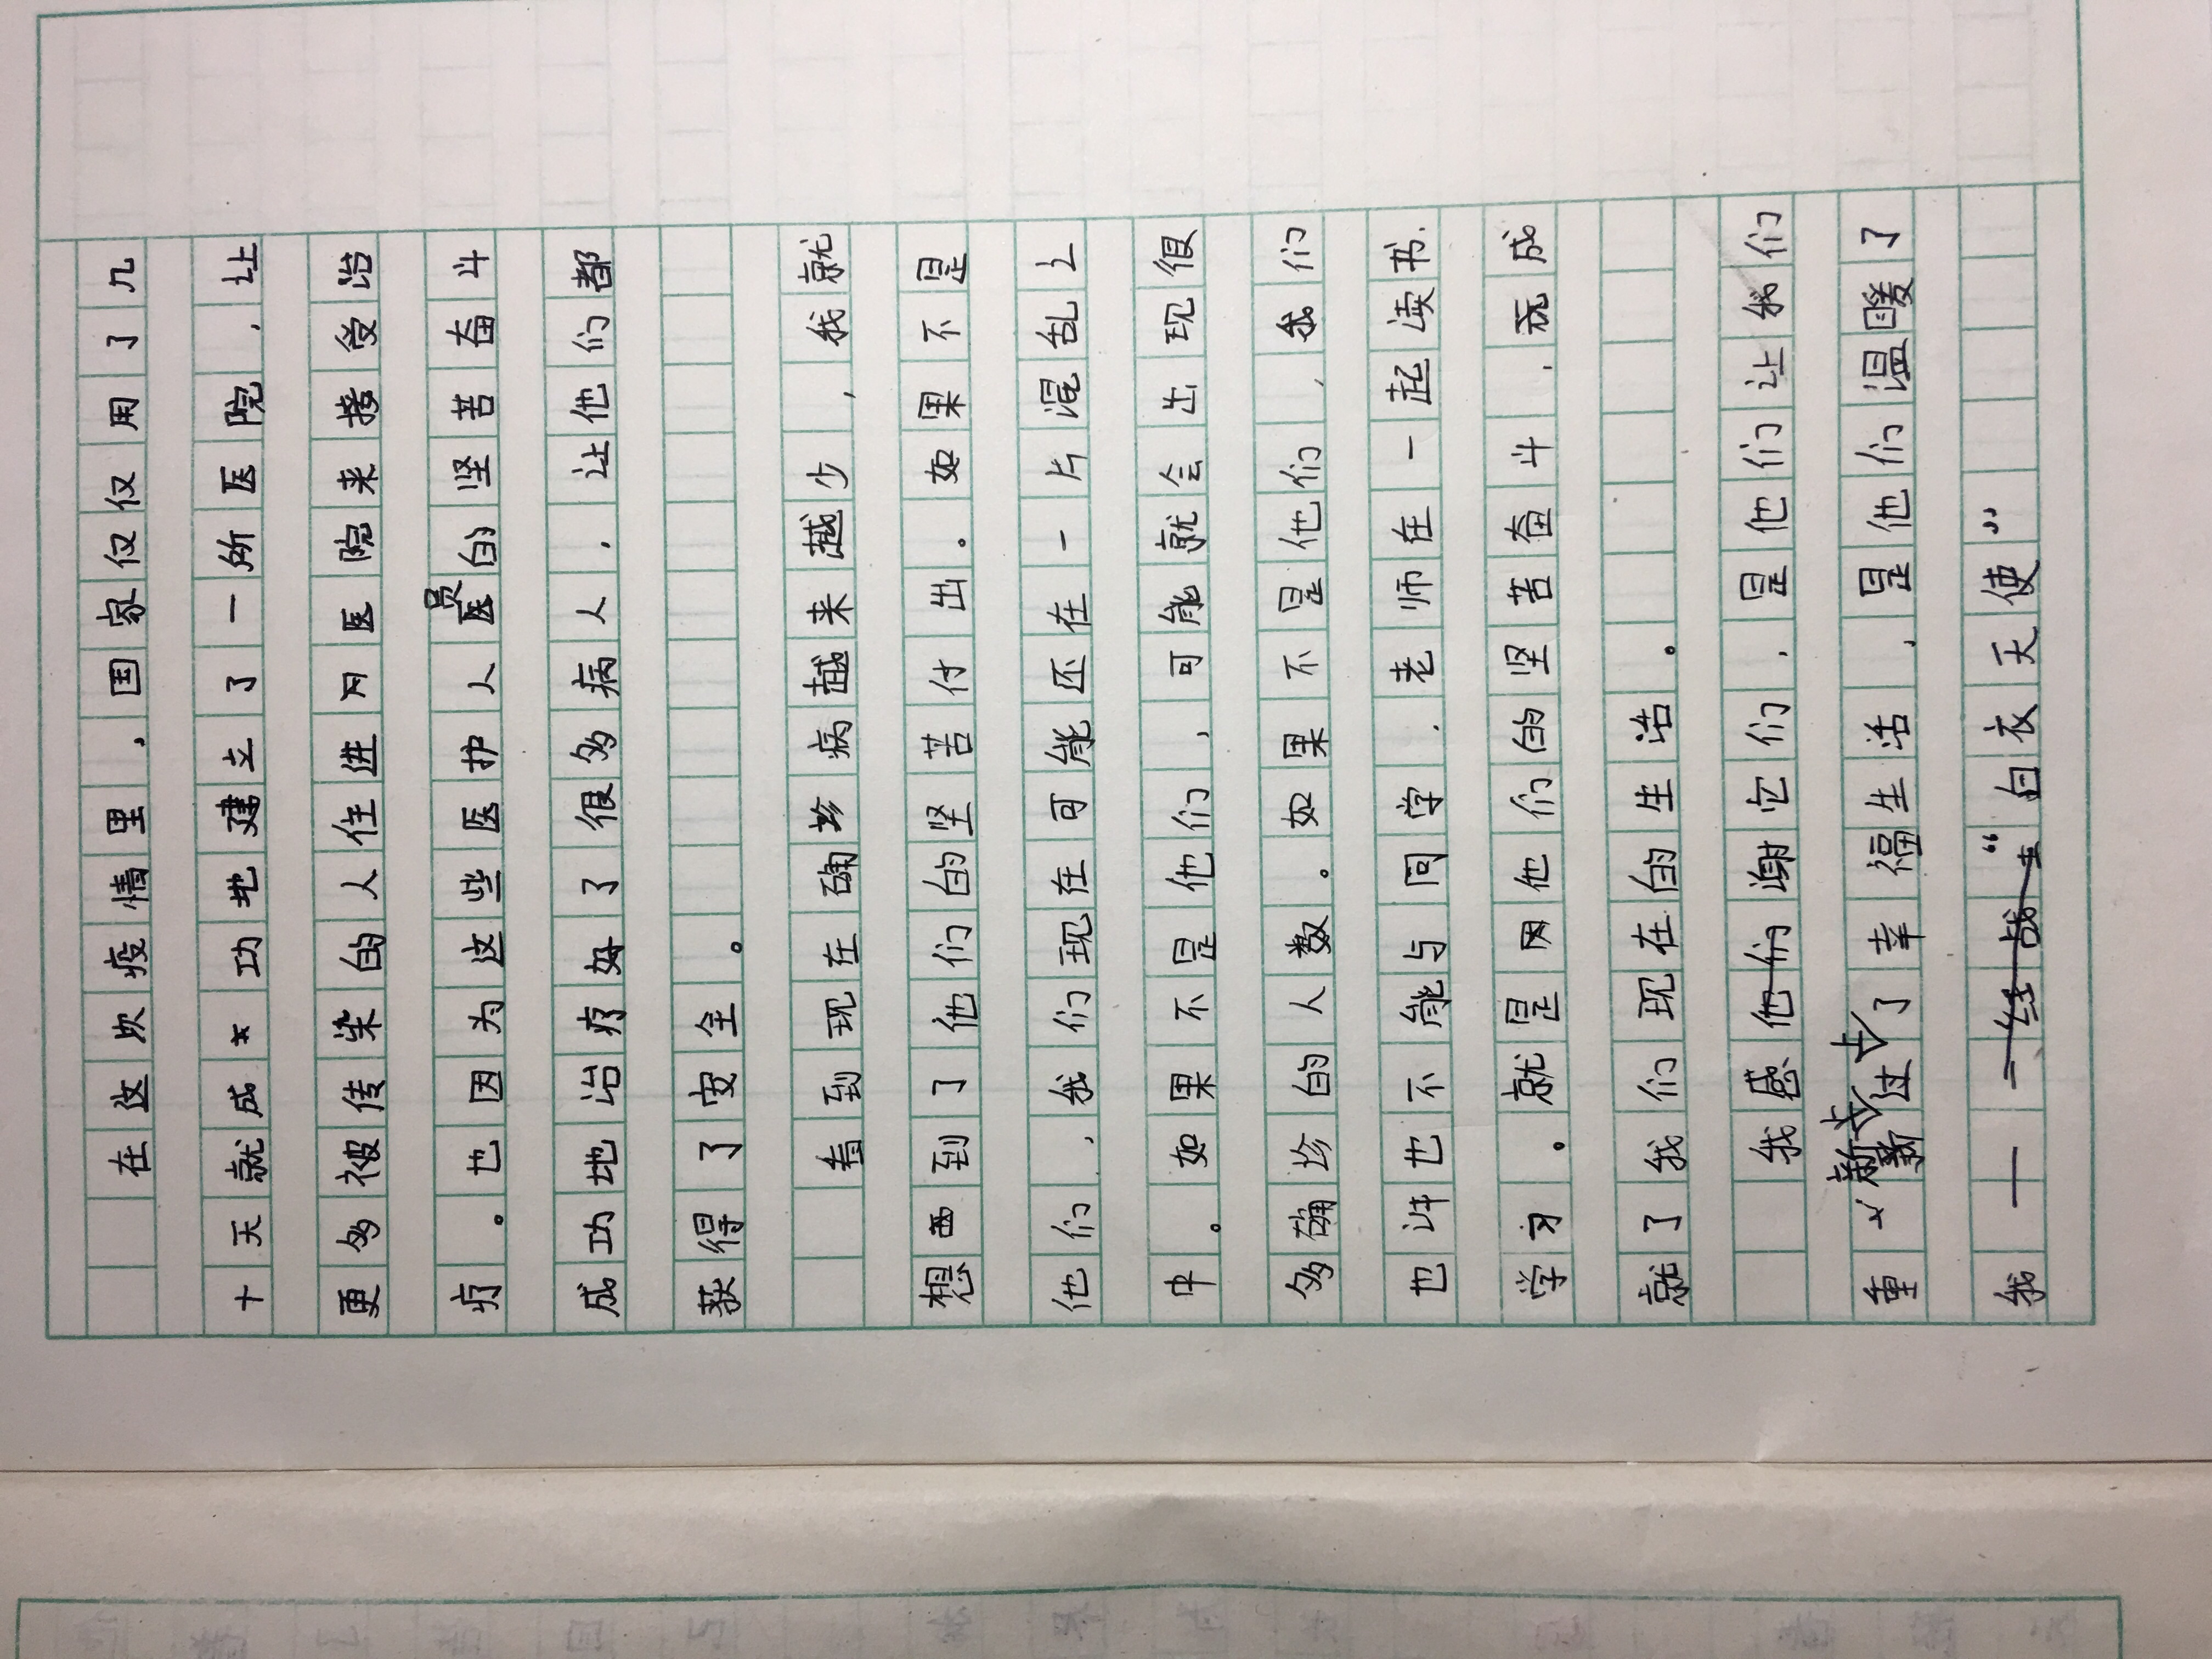 在这次疫情里，国家仅仅用了几
十天就成功地建立了一所医院，让
更多被传染的人住进医院来接受治
疗。也因为这些医护人员的坚苦奋斗
成功地治疗好了很多病人，让他们都
获得了安全。
看到现在确珍病越来越少，我就
想到了他们的坚苦付出。如果不是
他们，我们现在可能还在一片混乱之
中。如果不是他们，可能就会出现很
多确珍的人数。如果不是他们，我们
也许也不能与同学，老师在一起读书，
学习。就是因他们的坚苦奋斗，就成
就了我们现在的生活。
我感谢它们，是他们让我们
重新过上了幸福生活，是他们温暖了
我——“白衣天使”